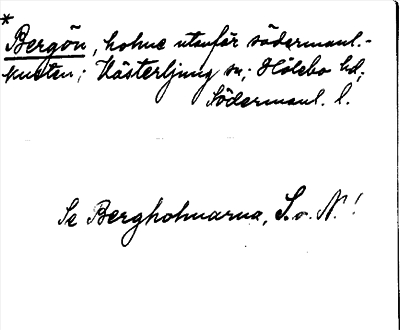 *
Bergön, holme utanför södermanl.-
kusten; Västerljung sn; Hölebo hd;
Södermanl. l.
Se Bergholmarna, S. o. N.!